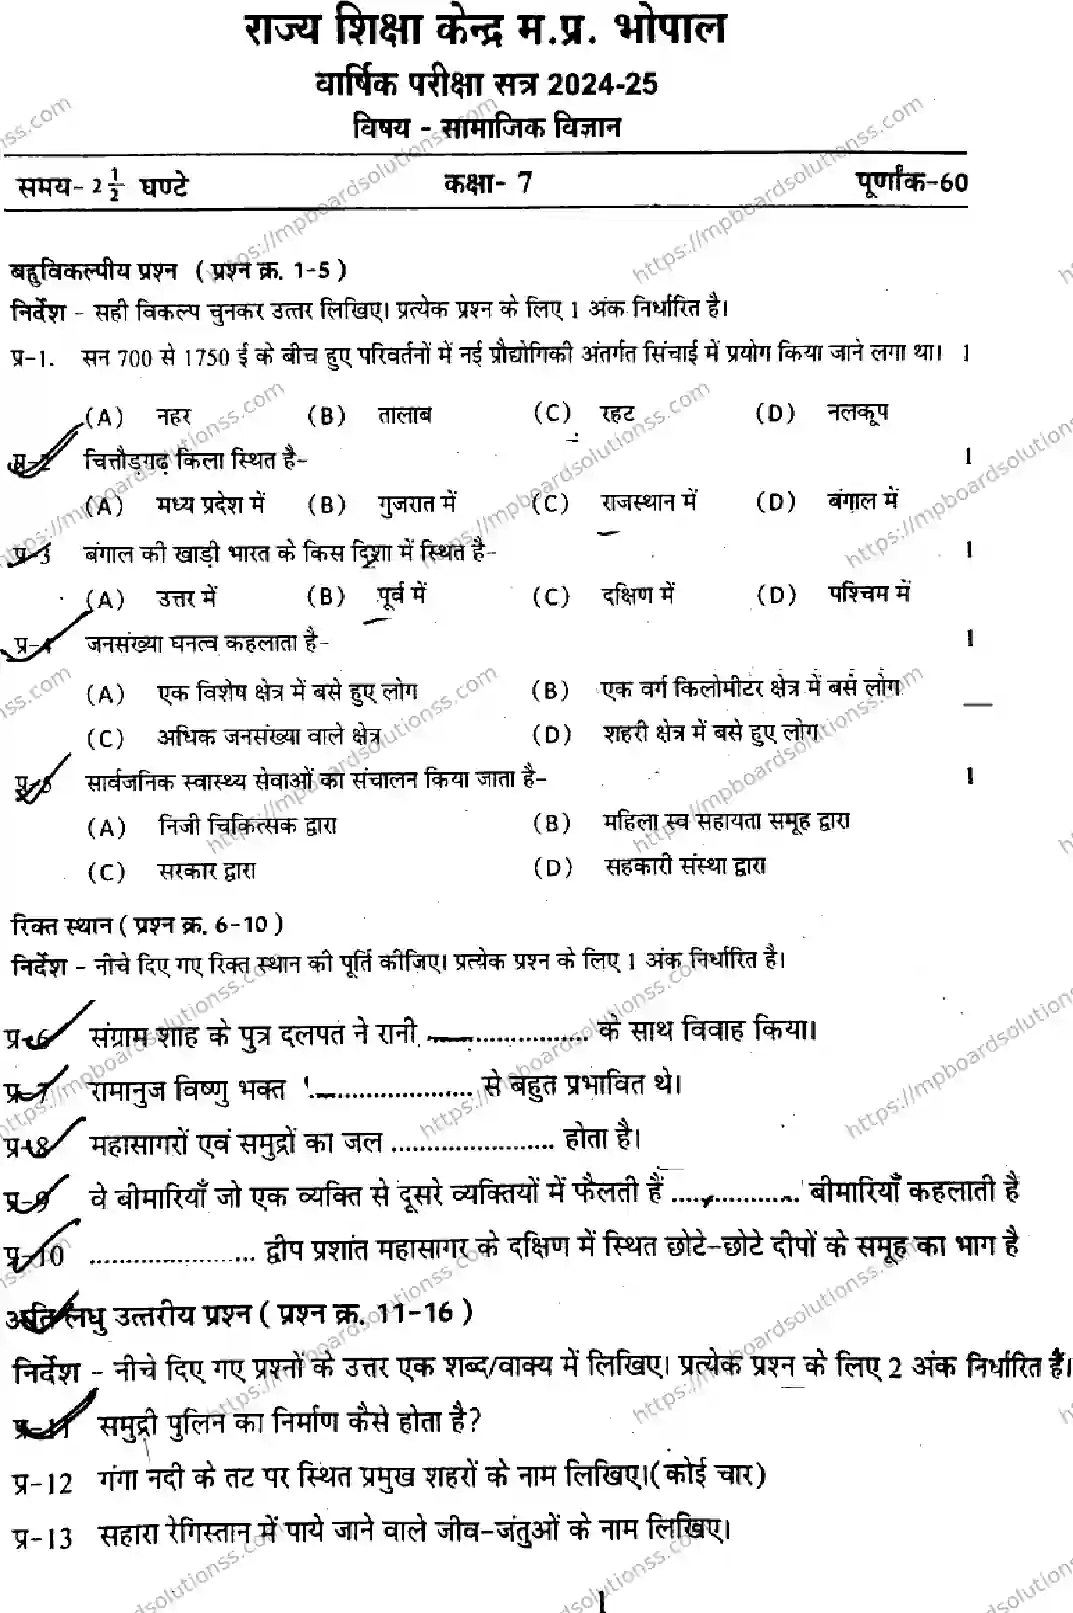 राज्य शिक्षा केन्द्र म.प्र. भोपाल
वार्षिक परीक्षा सत्र 2024-25
विषय - सामाजिक विज्ञान
समय- 2 1/2 घण्टे कक्षा- 7 पूर्णांक-60
बहुविकल्पीय प्रश्न ( प्रश्न क्र. 1-5 )
निर्देश - सही विकल्प चुनकर उत्तर लिखिए। प्रत्येक प्रश्न के लिए 1 अंक निर्धारित है।
प्र-1. सन 700 से 1750 ई के बीच हुए परिवर्तनों में नई प्रौद्योगिकी अंतर्गत सिंचाई में प्रयोग किया जाने लगा था। 1
(A) नहर (B) तालाब (C) रहट (D) नलकूप
प्र-2 चित्तौड़गढ़ किला स्थित है- 1
(A) मध्य प्रदेश में (B) गुजरात में (C) राजस्थान में (D) बंगाल में
प्र-3 बंगाल की खाड़ी भारत के किस दिशा में स्थित है- 1
(A) उत्तर में (B) पूर्व में (C) दक्षिण में (D) पश्चिम में
प्र-4 जनसंख्या घनत्व कहलाता है- 1
(A) एक विशेष क्षेत्र में बसे हुए लोग (B) एक वर्ग किलोमीटर क्षेत्र में बसे लोग
(C) अधिक जनसंख्या वाले क्षेत्र (D) शहरी क्षेत्र में बसे हुए लोग
प्र-5 सार्वजनिक स्वास्थ्य सेवाओं का संचालन किया जाता है- 1
(A) निजी चिकित्सक द्वारा (B) महिला स्व सहायता समूह द्वारा
(C) सरकार द्वारा (D) सहकारी संस्था द्वारा
रिक्त स्थान ( प्रश्न क्र. 6-10 )
निर्देश - नीचे दिए गए रिक्त स्थान की पूर्ति कीजिए। प्रत्येक प्रश्न के लिए 1 अंक निर्धारित है।
प्र-6 संग्राम शाह के पुत्र दलपत ने रानी ........................ के साथ विवाह किया।
प्र-7 रामानुज विष्णु भक्त ........................ से बहुत प्रभावित थे।
प्र-8 महासागरों एवं समुद्रों का जल ........................ होता है।
प्र-9 वे बीमारियाँ जो एक व्यक्ति से दूसरे व्यक्तियों में फैलती हैं ................... बीमारियाँ कहलाती है
प्र-10 ........................ द्वीप प्रशांत महासागर के दक्षिण में स्थित छोटे-छोटे दीपों के समूह का भाग है
अति लघु उत्तरीय प्रश्न ( प्रश्न क्र. 11-16 )
निर्देश - नीचे दिए गए प्रश्नों के उत्तर एक शब्द/वाक्य में लिखिए। प्रत्येक प्रश्न के लिए 2 अंक निर्धारित हैं।
प्र-11 समुद्री पुलिन का निर्माण कैसे होता है?
प्र-12 गंगा नदी के तट पर स्थित प्रमुख शहरों के नाम लिखिए।(कोई चार)
प्र-13 सहारा रेगिस्तान में पाये जाने वाले जीव-जंतुओं के नाम लिखिए।
1
https://mpboardsolutionss.com